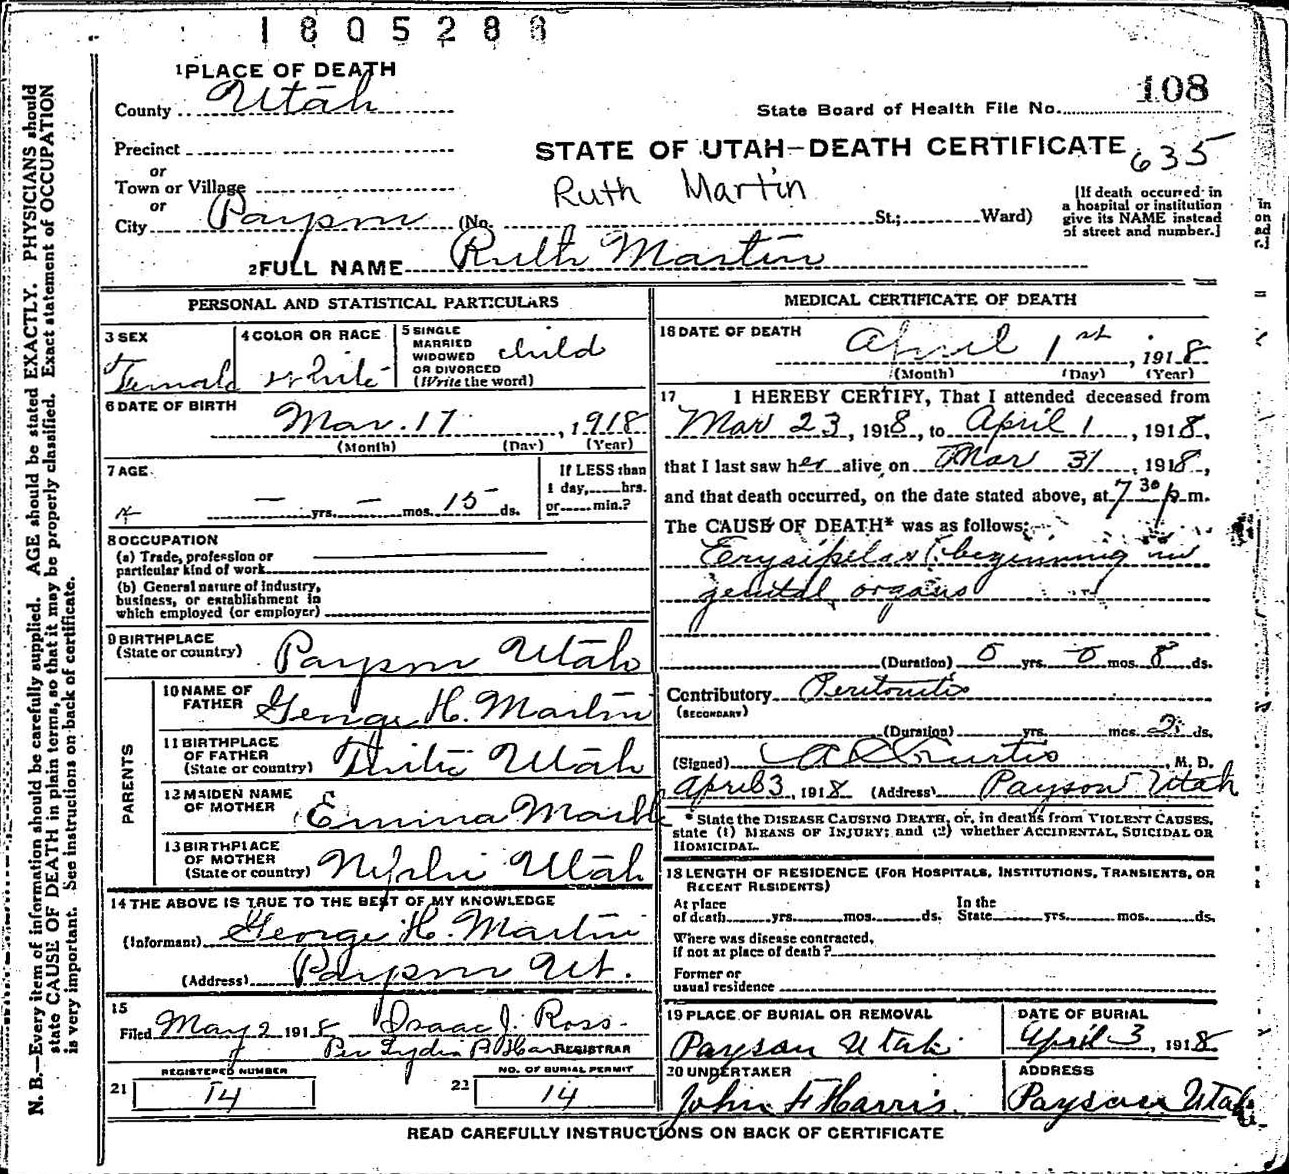 1805288
1 PLACE OF DEATH
County Utah
State Board of Health File No. 108
Precinct
or
Town or Village
or
City Payson (No. St.; Ward)
STATE OF UTAH—DEATH CERTIFICATE 635
Ruth Martin
[If death occurred in
a hospital or institution
give its NAME instead
of street and number.]
2 FULL NAME Ruth Martin
PERSONAL AND STATISTICAL PARTICULARS
3 SEX
Female
4 COLOR OR RACE
White
5 SINGLE
MARRIED
WIDOWED
OR DIVORCED
(Write the word)
child
6 DATE OF BIRTH
Mar. 17, 1918
(Month) (Day) (Year)
7 AGE
— yrs. — mos. 15 ds.
If LESS than
1 day, hrs.
or min.?
8 OCCUPATION
(a) Trade, profession or
particular kind of work
(b) General nature of industry,
business, or establishment in
which employed (or employer)
9 BIRTHPLACE
(State or country) Payson Utah
PARENTS
10 NAME OF
FATHER George H. Martin
11 BIRTHPLACE
OF FATHER
(State or country) Utah
12 MAIDEN NAME
OF MOTHER Emma
13 BIRTHPLACE
OF MOTHER
(State or country) Nephi Utah
14 THE ABOVE IS TRUE TO THE BEST OF MY KNOWLEDGE
(Informant) George H. Martin
(Address) Payson Ut.
15
Filed May 2 1918 Isaac J. Ross
Per Lydia REGISTRAR
REGISTERED NUMBER
21 14
NO. OF BURIAL PERMIT
22 14
MEDICAL CERTIFICATE OF DEATH
16 DATE OF DEATH
April 1st, 1918
(Month) (Day) (Year)
17 I HEREBY CERTIFY, That I attended deceased from
Mar 23, 1918, to April 1, 1918,
that I last saw her alive on Mar 31, 1918,
and that death occurred, on the date stated above, at 7 30 p.m.
The CAUSE OF DEATH* was as follows:
Erysipelas (beginning in
genital organs
(Duration) 0 yrs. 0 mos. 8 ds.
Contributory Peritonitis
(SECONDARY)
(Duration) yrs. mos. 2 ds.
(Signed) A L Curtis, M. D.
April 3, 1918 (Address) Payson Utah
* State the DISEASE CAUSING DEATH, or, in deaths from VIOLENT CAUSES,
state (1) MEANS OF INJURY; and (2) whether ACCIDENTAL, SUICIDAL OR
HOMICIDAL.
18 LENGTH OF RESIDENCE (FOR HOSPITALS, INSTITUTIONS, TRANSIENTS, OR
RECENT RESIDENTS)
At place
of death yrs. mos. ds.
In the
State yrs. mos. ds.
Where was disease contracted,
if not at place of death?
Former or
usual residence
19 PLACE OF BURIAL OR REMOVAL
Payson Utah
DATE OF BURIAL
April 3, 1918
20 UNDERTAKER
John F Harris
ADDRESS
Payson Utah
READ CAREFULLY INSTRUCTIONS ON BACK OF CERTIFICATE
N. B.—Every item of information should be carefully supplied. AGE should be stated EXACTLY. PHYSICIANS should
state CAUSE OF DEATH in plain terms, so that it may be properly classified. Exact statement of OCCUPATION
is very important. See instructions on back of certificate.
in
on
ad
r.]